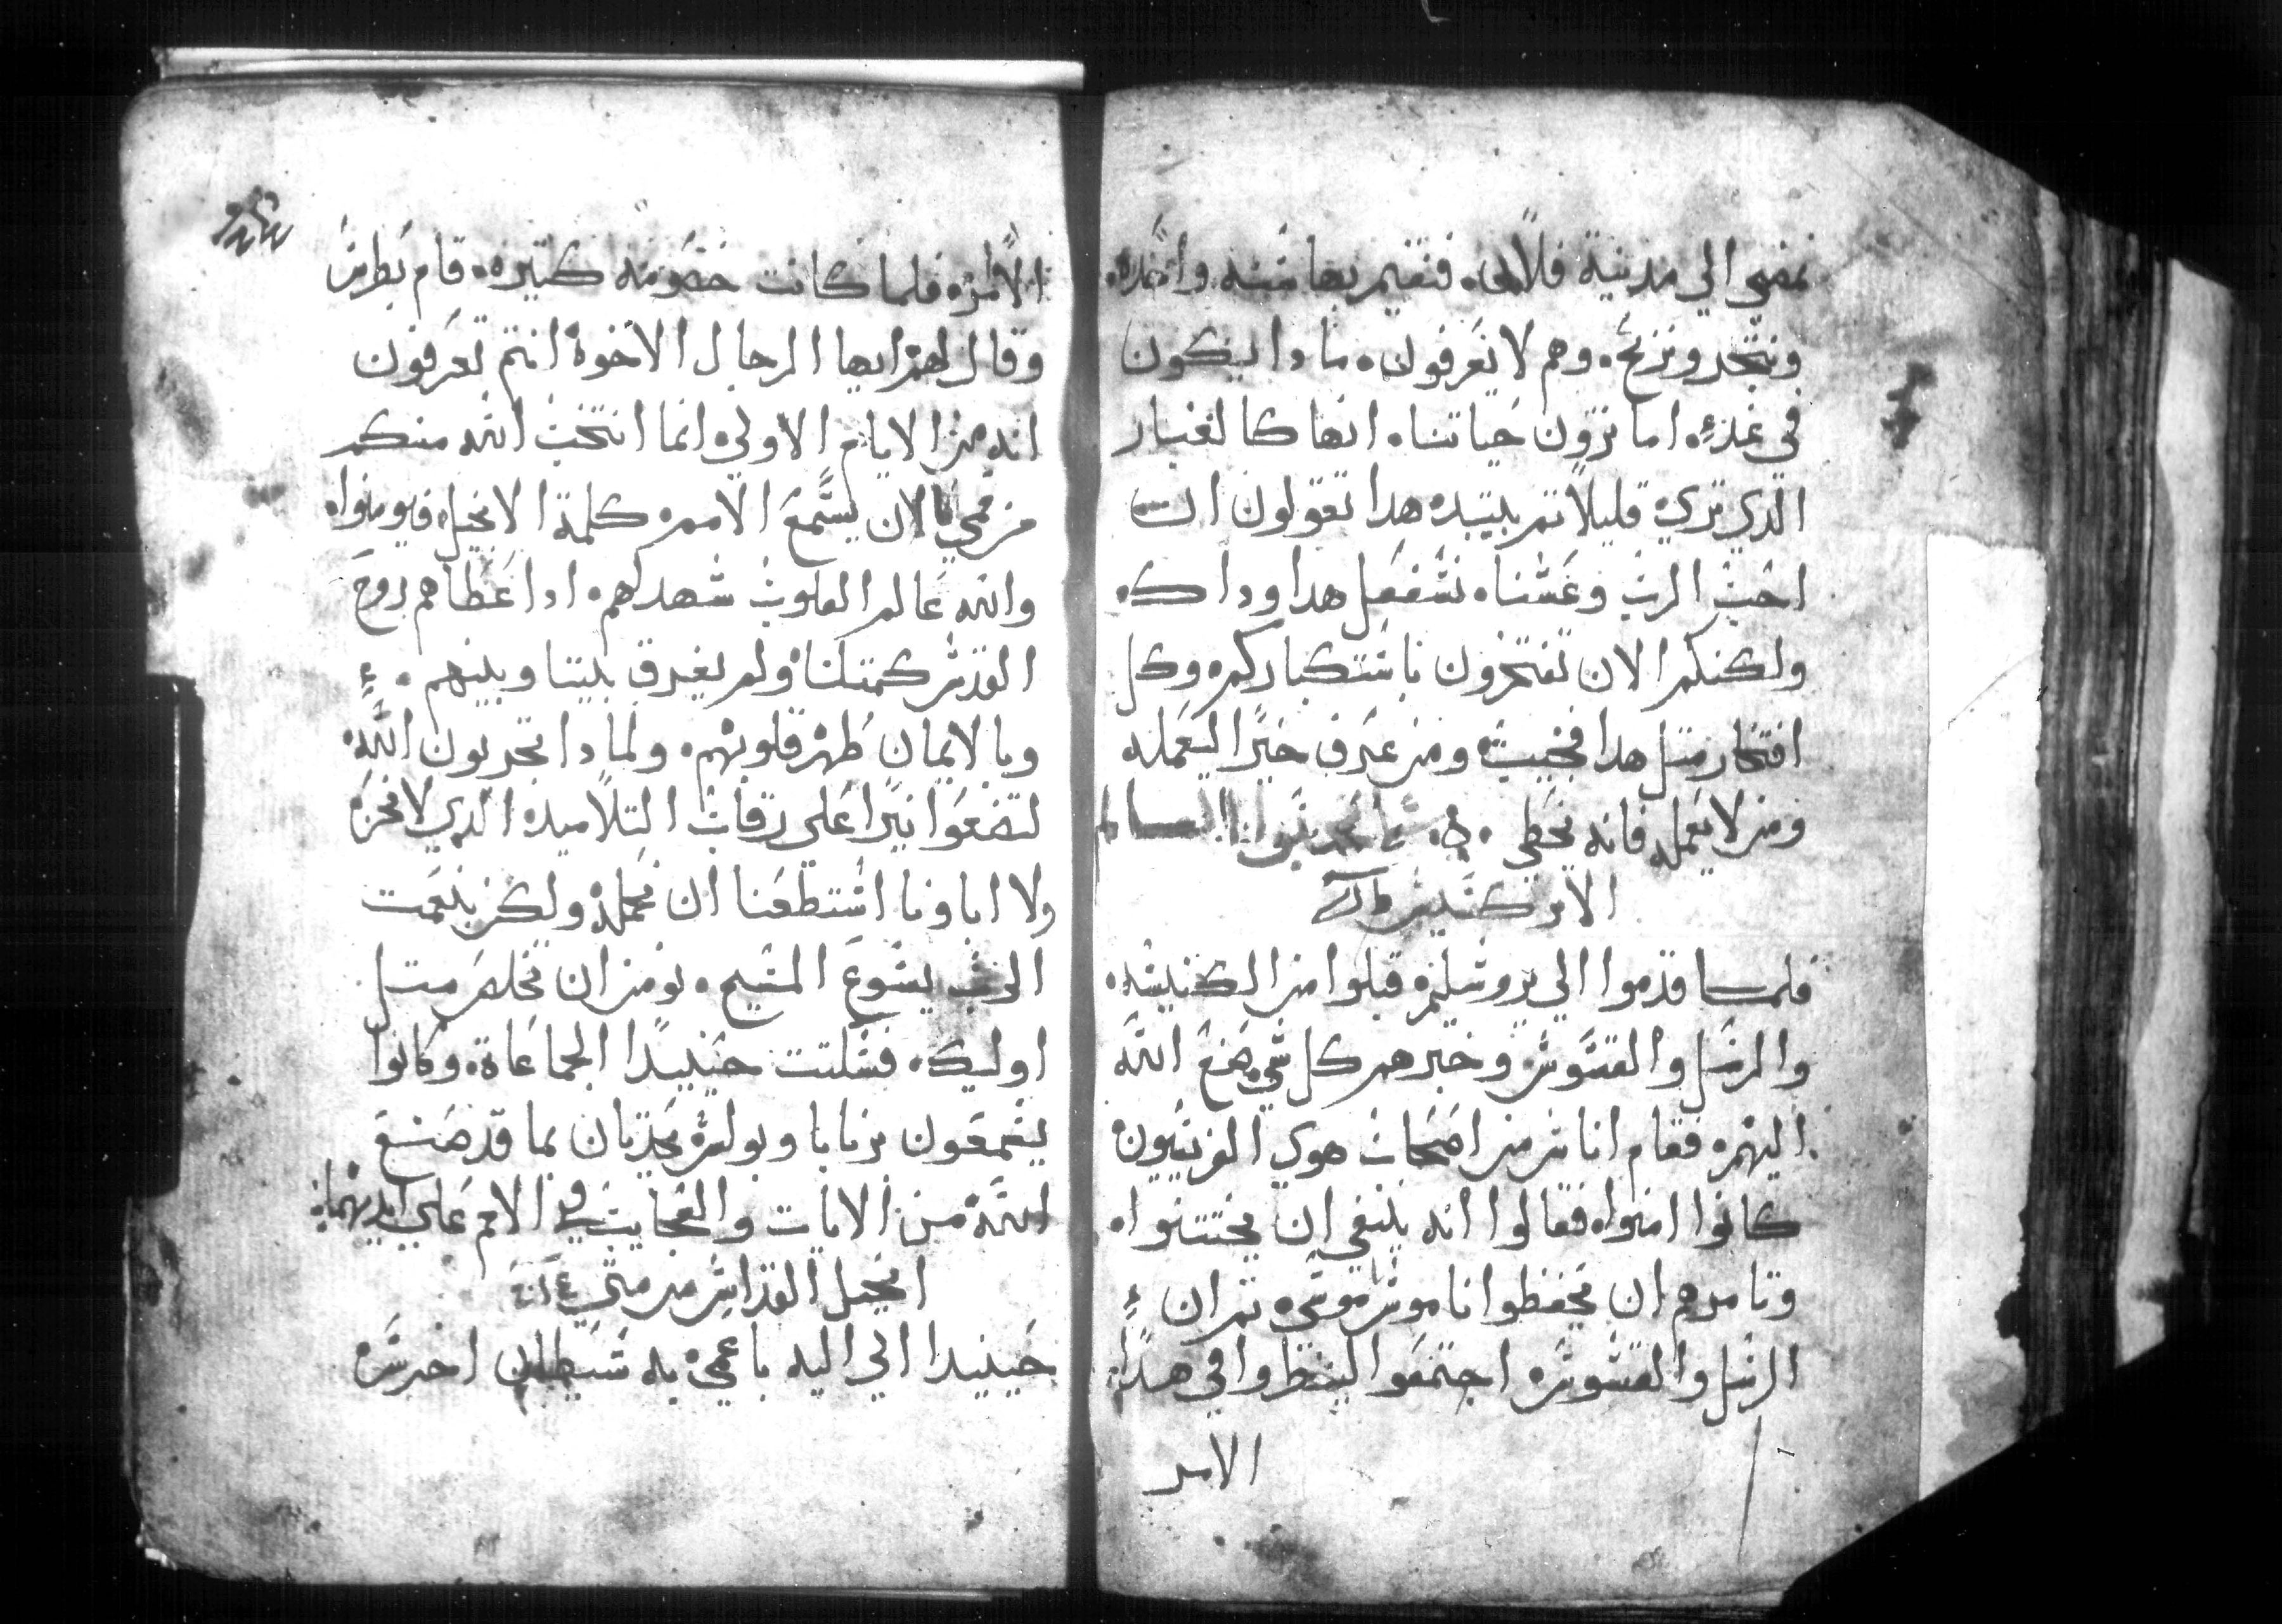 نمضي الي مدينة فلان. فنقيم بها سنه واحده.
ونتجر ونربح. وهم لا يعرفون. ما دا يكون
في غد. اما ترون حياتنا. انها كالغبار
الدي تري قليلا تم يبتبده هدا تقولون ان
احب الرب وعشنا. نشفعل هدا وداك.
ولكنكم الان تفتخرون باستكباركم. وكل
افتخار متل هدا فخبيت. ومن عرف خيرا ليعمله
ومن لا يعمله فانه يخطي.
الابركسيس
فلما قدموا الي يروشليم. قبلوا من الكنيسه.
والرسل والقسوس وخبرهم كل شي صنع الله
اليهم. فقام اناس من اصحاب هوي الفريسيون
كانوا امنوا. فقالوا انه ينبغي ان يختتنوا.
وتامرهم ان يحفظوا ناموس موسي. تم ان
الرسل والقسوس. اجتمعوا لينظروا في هدا
الامر
الامر. فلما كانت خصومه كتيره. قام بطرس
وقال لهم ايها الرجال الاخوة انتم تعرفون
انه من الايام الاولي. انما انتخب الله منكم
من فمي الان يستمع الامم. كلمة الانجيل. فيومنوا.
والله عالم القلوب شهد لهم. ادا عطاهم روح
القدس كمتلنا. ولم يفرق بيننا وبينهم.
وبالايمان طهر قلوبهم. ولما دا تجربون الله
لتضعوا نيرا علي رقاب التلاميد. الدي لا نحن
ولا اباونا استطعنا ان نحمله. ولكن بنعمت
الرب يسوع المسيح. نومن ان نخلص متل
اوليك. فسكتت حينيدا الجماعاة. وكانوا
يسمعون برنابا وبولس. يحدتان بما قد صنع
الله من الايات والعجايب في الامم علي ايديهما.
انجيل القداس من متي
حينيدا اتي اليه باعمي. به شيطان اخرس